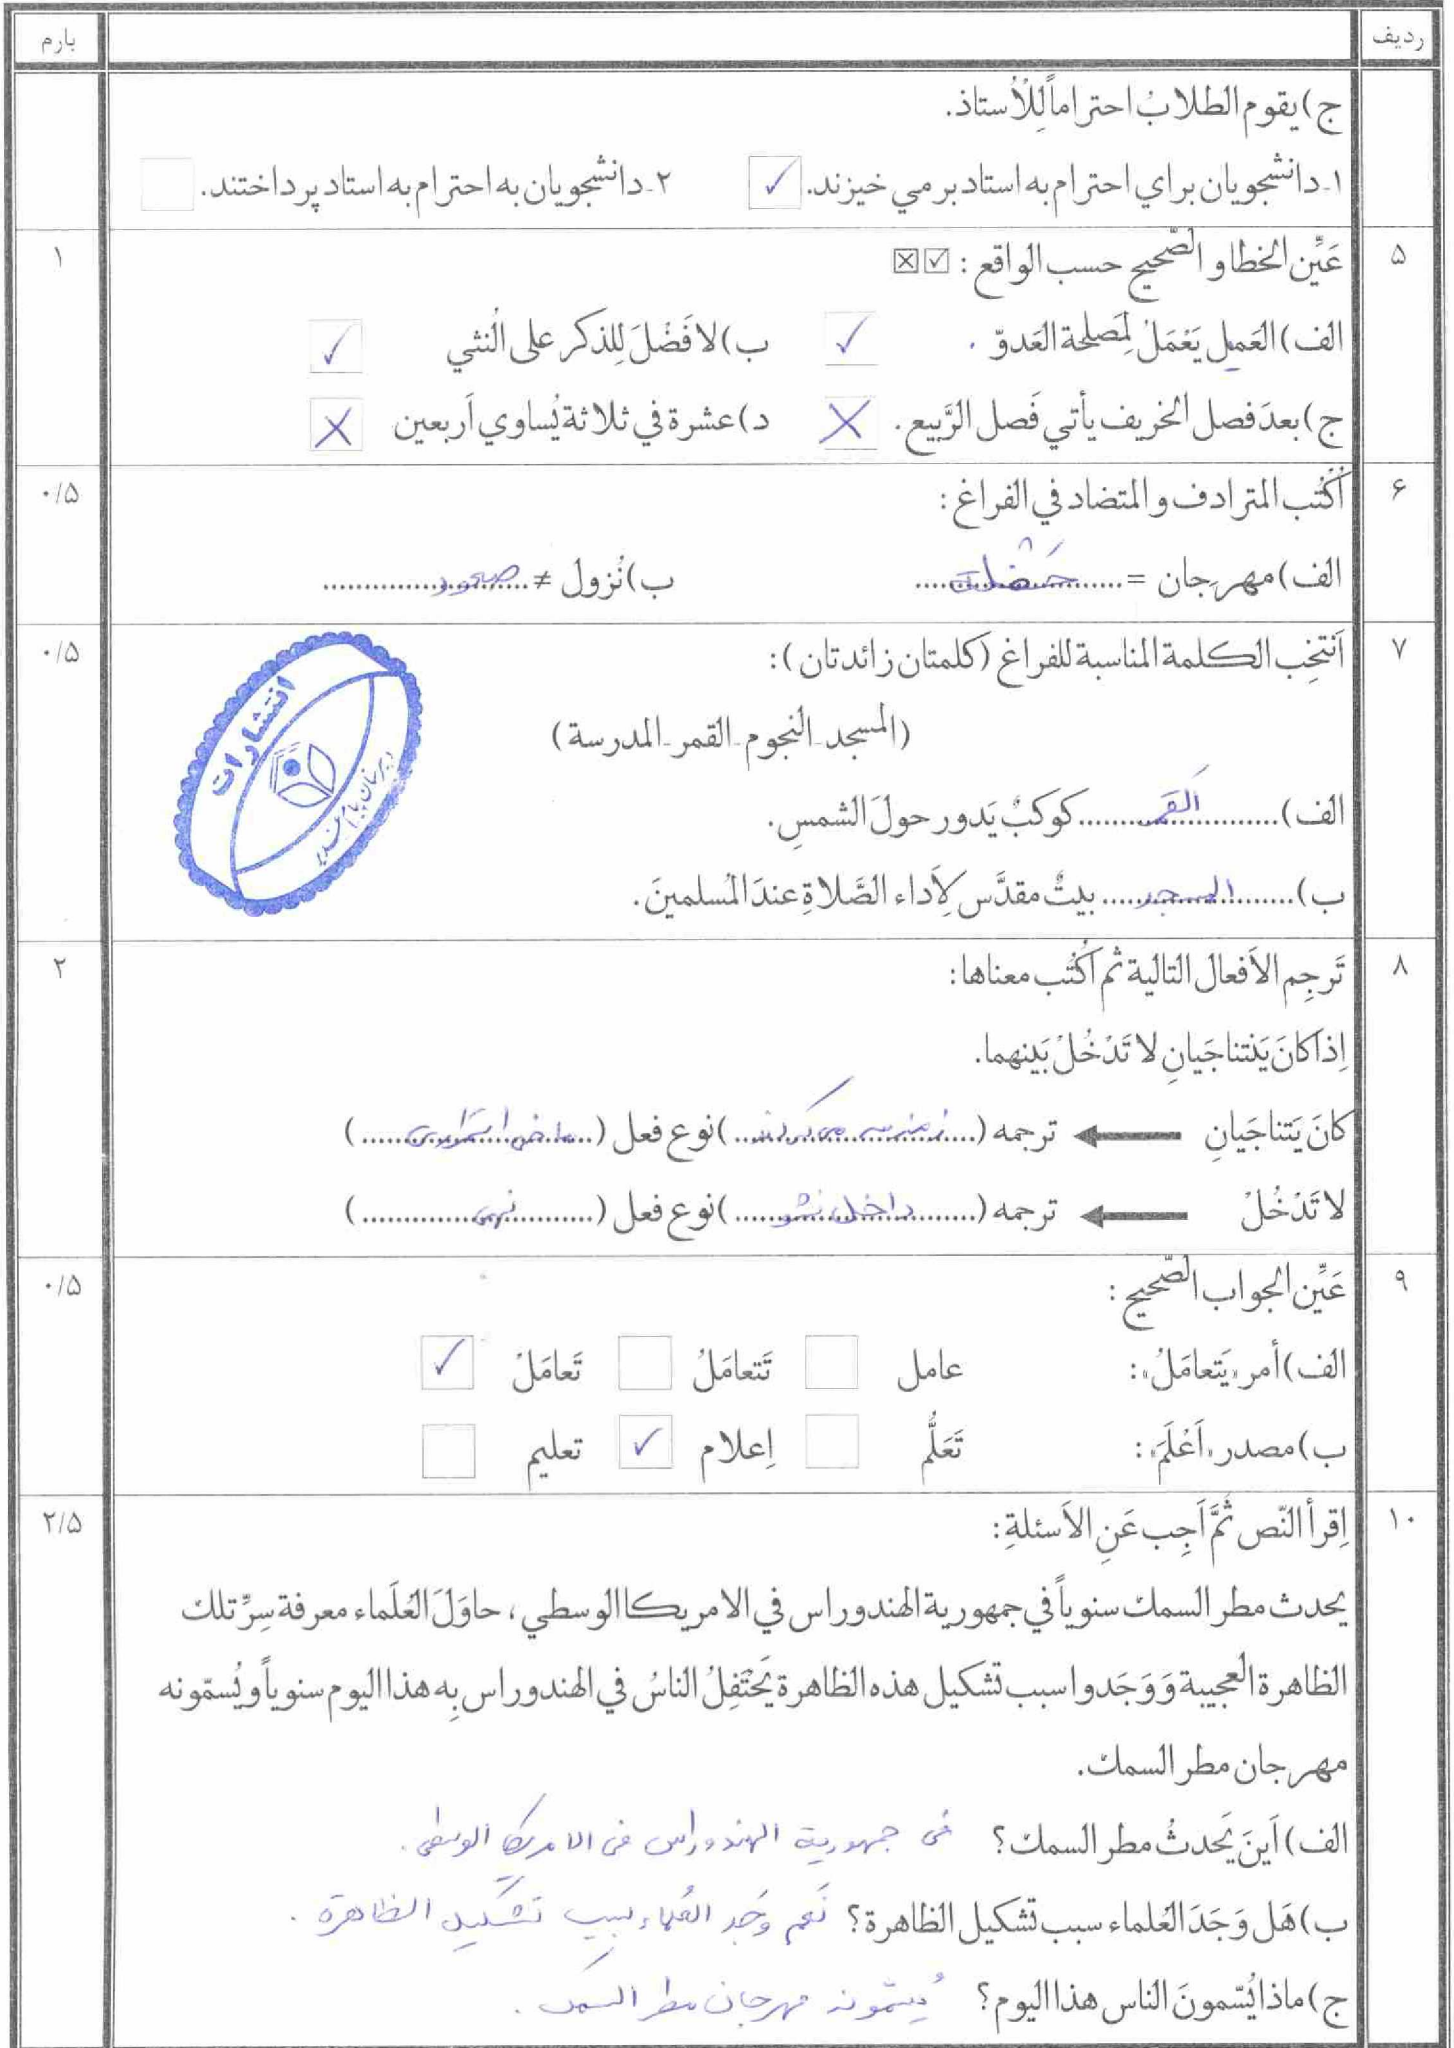 ردیف
بارم
ج) يقوم الطلابُ احتراماً لِلْأستاذ.
۱- دانشجويان براي احترام به استاد بر مي خيزند. ✓ ۲- دانشجويان به احترام به استاد پرداختند.
۵ عَيِّن الخطا و الصّحيح حسب الواقع : ☑ ☒ ۱
الف) العَميل يَعْمَلُ لِمَصلحة العَدوّ . ✓ ب) لا فَضْلَ لِلذكر على الُنثي ✓
ج) بعدَ فصل الخريف يأتي فَصل الرَّبيع . ✗ د) عشرة في ثلاثة يُساوي أربعين ✗
۶ اُكْتُب المترادف و المتضاد في الفراغ : ۰/۵
الف) مهرَجان = حَفْلَة ب) نُزول ≠ صعود
۷ اَنتخِب الكلمة المناسبة للفراغ (كلمتان زائدتان ): ۰/۵
(المسجد - النجوم - القمر - المدرسة )
انتشارات
الف) القَمر كوكبٌ يَدور حولَ الشمسِ.
ب) المسجد بيتٌ مقدَّس لِأَداء الصَّلاةِ عندَ المُسلمينَ.
۸ تَرجِم الاَفعال التالية ثم اكْتُب معناها: ۲
اِذا كانَ يَتناجَيانِ لا تَدْخُلْ بَينهما.
كانَ يَتناجَيانِ ← ترجمه ( زمزمه می کردند ) نوع فعل ( ماضی استمراری )
لا تَدْخُلْ ← ترجمه ( داخل نشو ) نوع فعل ( نهی )
۹ عَيِّن الجواب الصّحيح : ۰/۵
الف) أمر «يَتعامَلُ»: عامل تَتعامَلُ تَعامَلْ ✓
ب) مصدر «اَعْلَمَ»: تَعَلُّم اِعلام ✓ تعليم
۱۰ اِقرأ النّص ثُمَّ اَجِب عَنِ الاَسئلةِ: ۲/۵
يحدث مطر السمك سنوياً في جمهورية الهندوراس في الامريكا الوسطي ، حاوَلَ العُلَماء معرفة سِرِّ تلك
الظاهرة العجيبة وَ وَجَدوا سبب تشكيل هذه الظاهرة يَحْتَفِلُ الناسُ في الهندوراس بِه هذا اليوم سنوياً و يُسمّونه
مهرجان مطر السمك.
الف) اَينَ يَحدثُ مطر السمك؟ فی جمهورية الهندوراس فی الامریکا الوسطی .
ب) هَل وَجَدَ العُلماء سبب تشكيل الظاهرة؟ نَعَم وَجَد العُلماء سبب تشکیل الظاهرة .
ج) ماذا يُسّمونَ الناس هذا اليوم؟ يُسمّونه مهرجان مطر السمک .